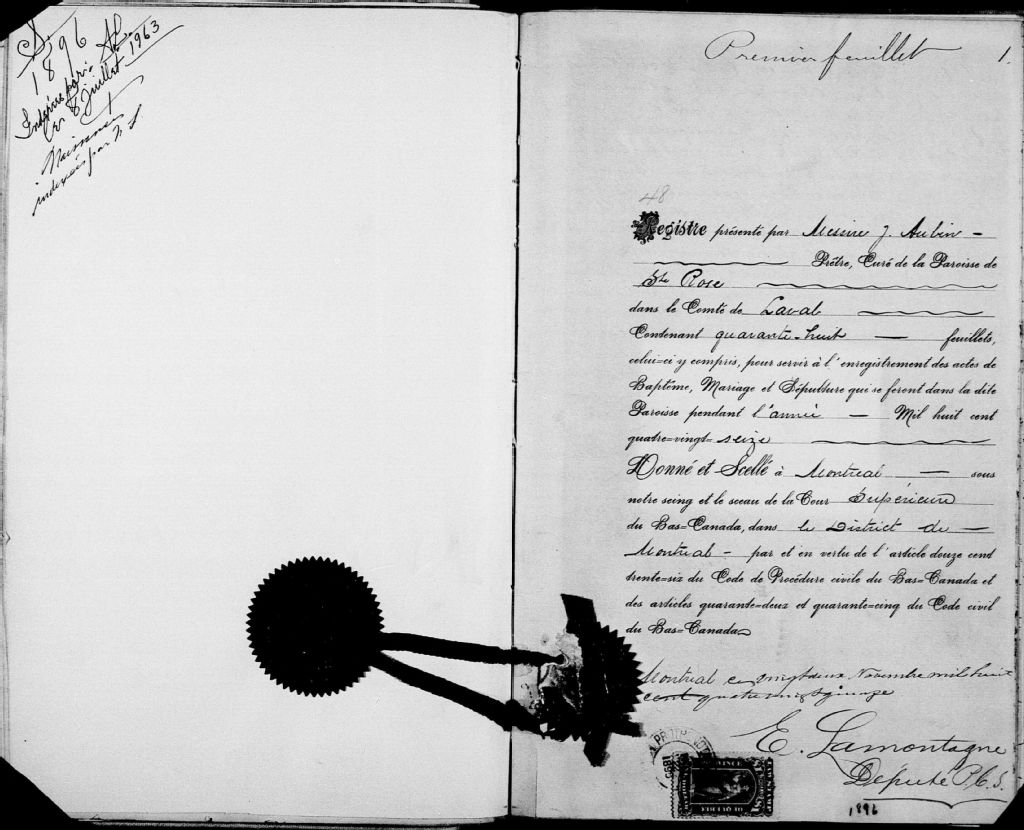 S.
1896 
8 juillet 1963
indexées par
Premier feuillet 1.
48
Registre présenté par Messire J. Aubin
Prêtre, Curé de la Paroisse de
Ste Rose
dans le Comté de Laval
Contenant quarante-huit feuillets,
celui=ci y compris, pour servir à l'enregistrement des actes de
Baptême, Mariage et Sépulture qui se feront dans la dite
Paroisse pendant l'année Mil huit cent
quatre=vingt= seize
Donné et Scellé à Montreal sous
notre seing et le sceau de la Cour Supérieure
du Bas=Canada, dans le District de
Montreal par et en vertu de l'article douze cent
trente=six du Code de Procédure civile du Bas=Canada et
des articles quarante=deux et quarante=cinq du Code civil
du Bas=Canada
Montreal ce vingtdeux Novembre mil huit
cent quatrevingtquinze
E. Lamontagne
Député P.C.S.
PROVINCE
1896